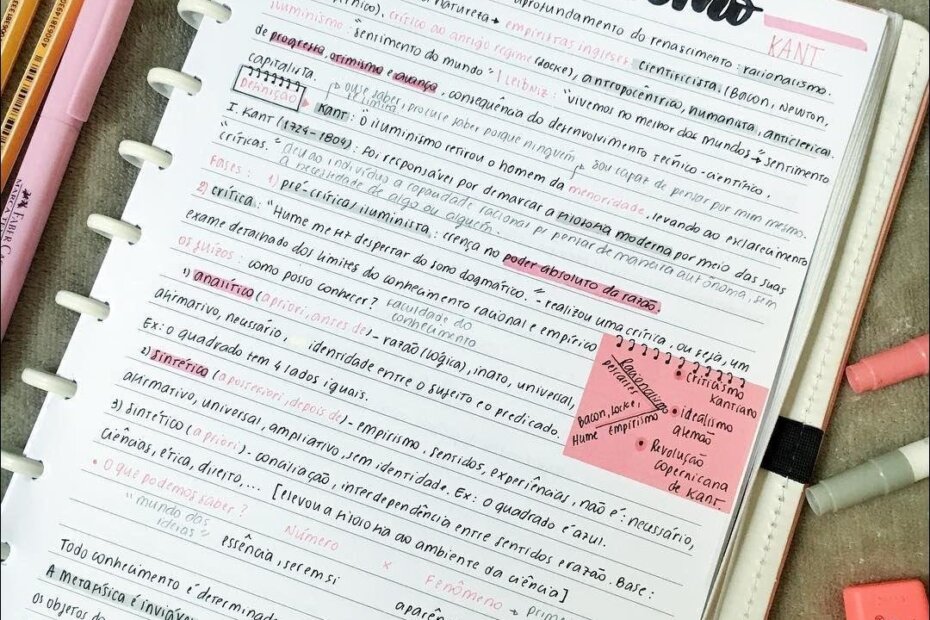 KANT
aprofundamento do renascimento: racionalismo.
natureza → empiristas ingleses. cientificista. (Bacon, Newton,
iluminismo: crítico ao antigo regime (Locke), antropocêntrico, humanista, anticlerical.
"sentimento do mundo" | Leibniz: "vivemos no melhor dos mundos → sentimento
de progresso, otimismo e avanço. consequência do desenvolvimento técnico-científico.
capitalista.
ouse saber, procure saber porque ninguém
sou capaz de pensar por mim mesmo.
Definição
Kant: "O iluminismo retirou o homem da menoridade, levando ao esclarecimento
I. Kant (1724-1804): Foi responsável por demarcar a Filosofia moderna por meio das suas
"críticas."
deu ao indivíduo a capacidade racional p/ pensar de maneira autônoma, sem
a necessidade de algo ou alguém.
Fases: 1) pré-crítica/iluminista: crença no poder absoluto da razão.
2) crítica: "Hume me fez despertar do sono dogmático." - realizou uma crítica, ou seja, um
exame detalhado dos limites do conhecimento racional e empírico
os juízos: como posso conhecer? faculdade do
conhecimento
1) analítico (a priori, antes de) - razão (lógica), inato, universal,
afirmativo, necessário, identidade entre o sujeito e o predicado.
Ex: o quadrado tem 4 lados iguais.
2) sintético (a posteriori, depois de) - empirismo, sentidos, experiências, não é: necessário,
afirmativo, universal, ampliativo, sem identidade. Ex: o quadrado é azul.
3) sintético (a priori) - conciliação, interdependência entre sentidos e razão. Base:
ciências, ética, direito, ... [elevou a Filosofia ao ambiente da ciência]
• O que podemos saber?
"mundo das
ideias"
Número x Fenômeno → prim
essência, ser em si
aparên
Todo conhecimento é determinad
A metafísica é inviáv
os objetos do
Racionalismo
Descartes
Bacon, Locke,
Hume empirismo
• criticismo
kantiano
• idealismo
alemão
• Revolução
copernicana
de Kant.
4006381493
FABER-CA